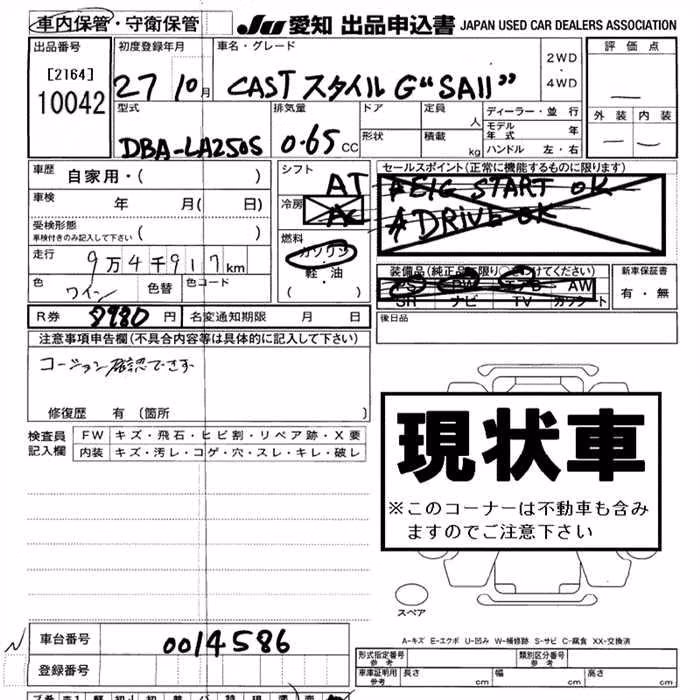 車内保管・守衛保管 JU 愛知 出品申込書 JAPAN USED CAR DEALERS ASSOCIATION
出品番号 初度登録年月 車名・グレード 2WD ・ 4WD 評価点
[2164]
10042 27 10月 CAST スタイル G"SAII" —
型式 排気量 ドア 定員 人 ディーラー・並行 外装 内装
DBA-LA250S 0.65 CC 形状 積載 kg モデル年式 年 — —
ハンドル 左・右
車歴 自家用・( ) シフト AT セールスポイント(正常に機能するものに限ります)
車検 年 月( 日) 冷房 AC
DRIVE OK
受検形態 車検付きのみ記入して下さい ( ) 燃料 ガソリン
走行 9万4千917km 軽・油
色 ワイン 色替 色コード ( ・ )
装備品(純正品に限り○をつけてください) 新車保証書
PS PW エアB AW 有・無
SR ナビ TV カワシート
R券 8980円 名変通知期限 月 日 後日品
注意事項申告欄(不具合内容等は具体的に記入して下さい)
修復歴 有 (箇所 )
検査員記入欄 FW キズ・飛石・ヒビ割・リペア跡・X要
内装 キズ・汚レ・コゲ・穴・スレ・キレ・破レ
現状車
※このコーナーは不動車も含み
ますのでご注意下さい
スペア
車台番号 0014586 A-キズ E-エクボ U-凹み W-補修跡 S-サビ C-腐食 XX-交換済
登録番号 形式指定番号 参考 類別区分番号 参考
車庫証明用 参考 長さ cm 幅 cm 高さ cm